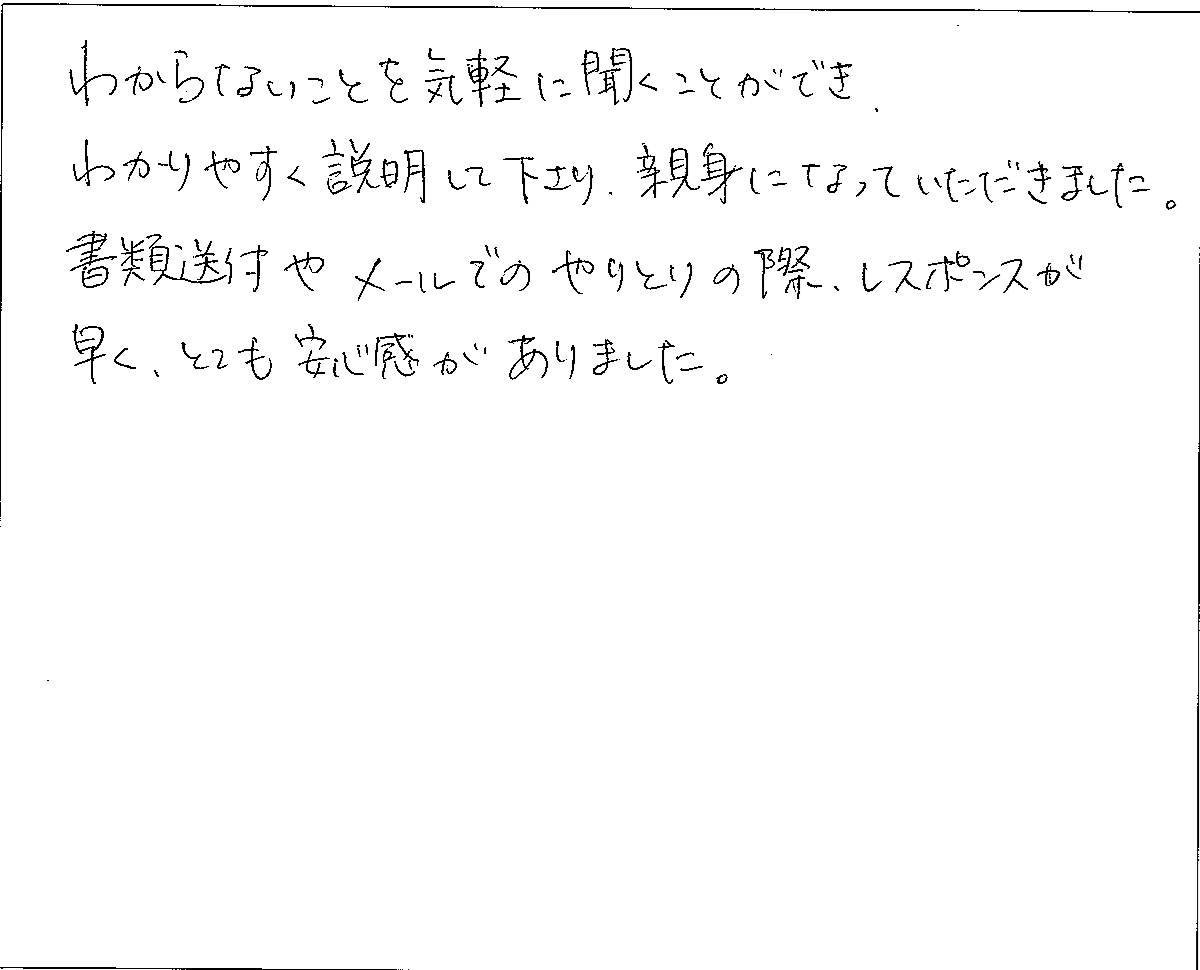 わからないことを気軽に聞くことができ、
わかりやすく説明して下さり、親身になっていただきました。
書類送付やメールでのやりとりの際、レスポンスが
早く、とても安心感がありました。